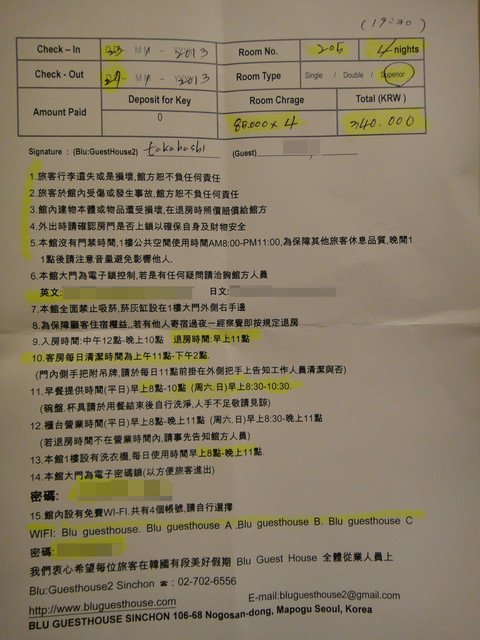 (19-20)
Check – In 23 1 2013 Room No. 205 4 nights
Check - Out 27 1 2013 Room Type Single / Double / Superior
Amount Paid Deposit for Key Room Chrage Total (KRW )
0 80.000 x 4 340.000
Signature : (Blu:GuestHouse2) takahashi (Guest)
1.旅客行李遺失或是損壞,館方恕不負任何責任
2.旅客於館內受傷或發生事故,館方恕不負任何責任
3.館內建物本體或物品遭受損壞,在退房時照價賠償給館方
4.外出時請確認房門是否上鎖以確保自身及財物安全
5.本館沒有門禁時間,1樓公共空間使用時間AM8:00-PM11:00,為保障其他旅客休息品質,晚間1
1點後請注意音量避免影響他人.
6.本館大門為電子鎖控制,若是有任何疑問請洽詢館方人員
英文: 日文:
7.本館全面禁止吸菸,菸灰缸設在1樓大門外側右手邊
8.為保障顧客住宿權益,,若有他人寄宿過夜一經察覺即按規定退房
9.入房時間:中午12點-晚上10點 退房時間:早上11點
10.客房每日清潔時間為上午11點-下午2點.
(門內側手把附吊牌,請於每日11點前掛在外側把手上告知工作人員清潔與否)
11.早餐提供時間(平日)早上8點-10點 (周六.日)早上8:30-10:30.
(碗盤.杯具請於用餐結束後自行洗淨,人手不足敬請見諒)
12.櫃台營業時間(平日)早上8點-晚上11點 (周六.日)早上8:30-晚上11點
(若退房時間不在營業時間內,請事先告知館方人員)
13.本館1樓設有洗衣機,每日使用時間早上8點-晚上11點.
14.本館大門為電子密碼鎖(以方便旅客進出)
密碼:
15.館內設有免費WI-FI.共有4個帳號,請自行選擇
WIFI: Blu guesthouse. Blu guesthouse A .Blu guesthouse B. Blu guesthouse C
密碼:
我們衷心希望每位旅客在韓國有段美好假期 Blu Guest House 全體從業人員上
Blu:Guesthouse2 Sinchon ☎ : 02-702-6556
http://www.bluguesthouse.com E-mail:bluguesthouse2@gmail.com
BLU GUESTHOUSE SINCHON 106-68 Nogosan-dong, Mapogu Seoul, Korea